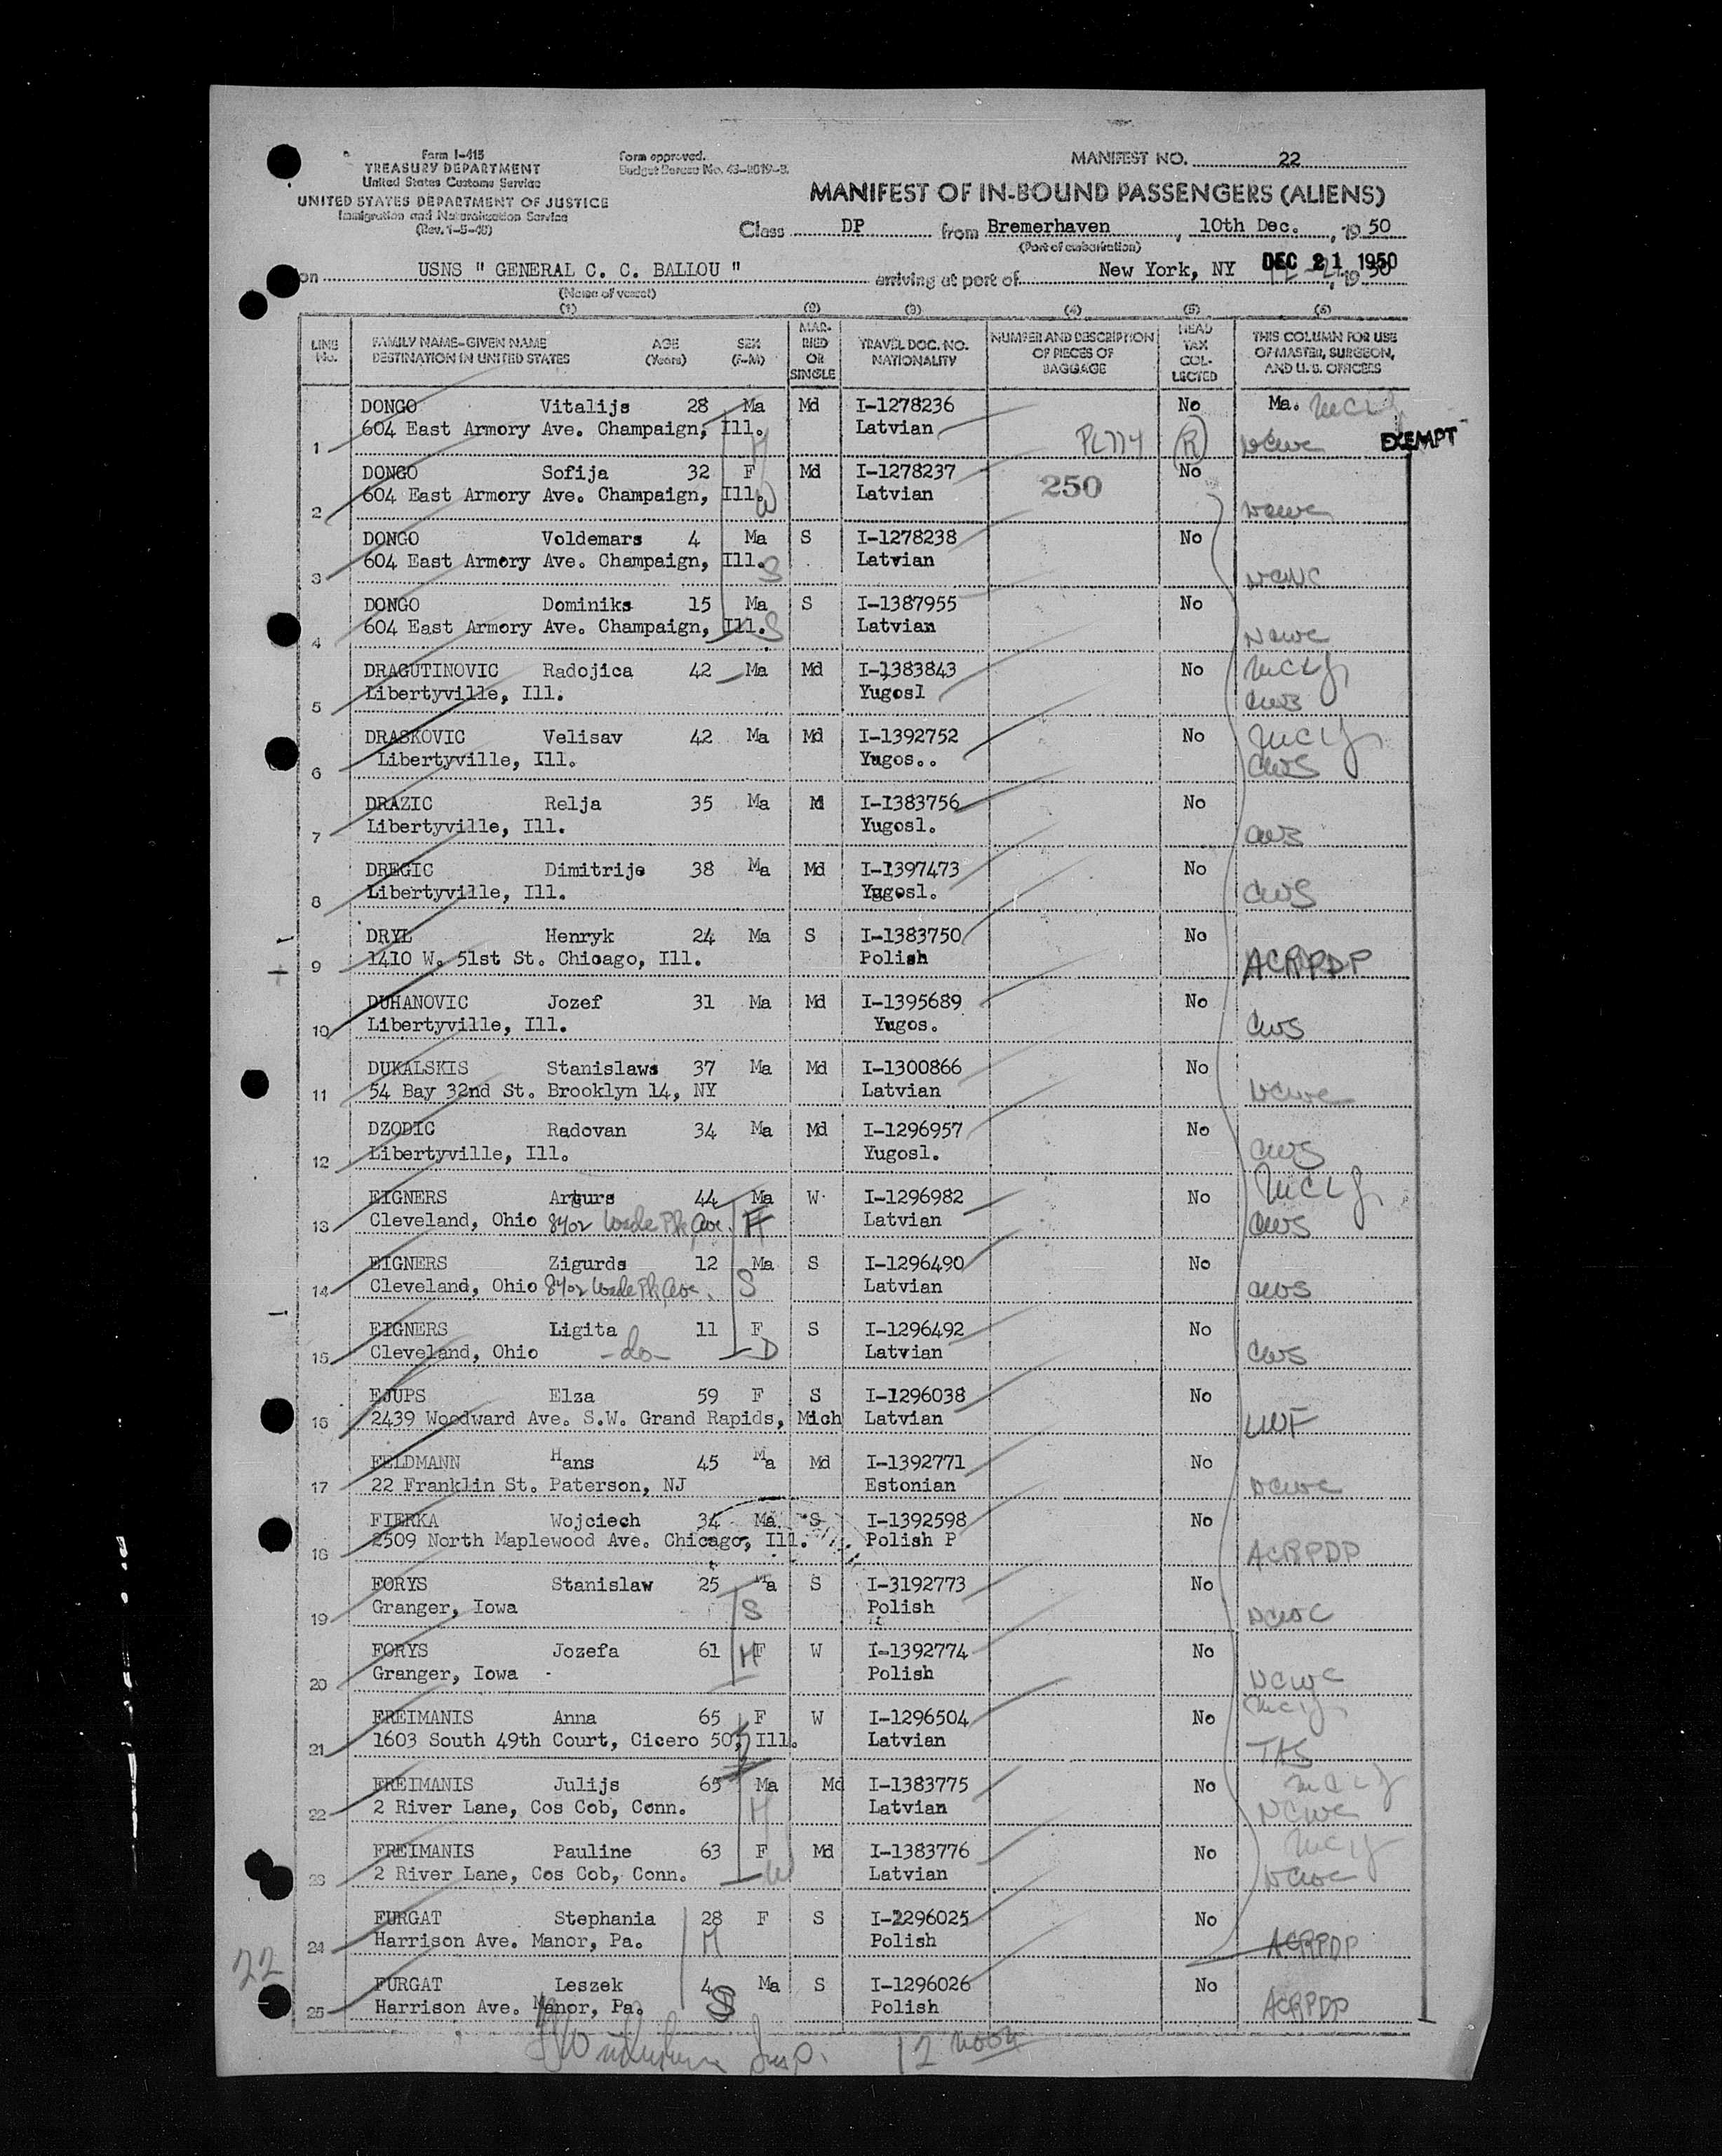 Form I-415
TREASURY DEPARTMENT
United States Customs Service
UNITED STATES DEPARTMENT OF JUSTICE
Immigration and Naturalization Service
(Rev. 1-5-48)
Form approved.
Budget Bureau No. 43-R019-3.
MANIFEST NO. 22
MANIFEST OF IN-BOUND PASSENGERS (ALIENS)
Class DP from Bremerhaven, 10th Dec., 1950
(Port of embarkation)
on USNS " GENERAL C. C. BALLOU " arriving at port of New York, NY DEC 21 1950 1950
(Name of vessel)
(1) (2) (3) (4) (5) (6)
LINE No. FAMILY NAME-GIVEN NAME DESTINATION IN UNITED STATES AGE (Years) SEX (F-M) MARRIED OR SINGLE TRAVEL DOC. NO. NATIONALITY NUMBER AND DESCRIPTION OF PIECES OF BAGGAGE HEAD TAX COLLECTED THIS COLUMN FOR USE OF MASTER, SURGEON, AND U. S. OFFICERS
DONGO Vitalijs 28 Ma Md I-1278236 No Ma. MCLJ
1 604 East Armory Ave. Champaign, Ill. H Latvian PL774 (R) NCWC EXEMPT
DONGO Sofija 32 F Md I-1278237 No
2 604 East Armory Ave. Champaign, Ill. W Latvian 250 NCWC
DONGO Voldemars 4 Ma S I-1278238 No
3 604 East Armory Ave. Champaign, Ill. S Latvian NCWC
DONGO Dominiks 15 Ma S I-1387955 No
4 604 East Armory Ave. Champaign, Ill. S Latvian NCWC
DRAGUTINOVIC Radojica 42 Ma Md I-1383843 No MCLJ
5 Libertyville, Ill. Yugosl CWS
DRASKOVIC Velisav 42 Ma Md I-1392752 No MCLJ
6 Libertyville, Ill. Yugos.. CWS
DRAZIC Relja 35 Ma M I-1383756 No
7 Libertyville, Ill. Yugosl. CWS
DREGIC Dimitrije 38 Ma Md I-1397473 No
8 Libertyville, Ill. Yggosl. CWS
DRYL Henryk 24 Ma S I-1383750 No
9 1410 W. 51st St. Chicago, Ill. Polish ACRPDP
DUHANOVIC Jozef 31 Ma Md I-1395689 No
10 Libertyville, Ill. Yugos. CWS
DUKALSKIS Stanislaws 37 Ma Md I-1300866 No
11 54 Bay 32nd St. Brooklyn 14, NY Latvian NCWC
DZODIC Radovan 34 Ma Md I-1296957 No
12 Libertyville, Ill. Yugosl. CWS
EIGNERS Arturs 44 Ma W I-1296982 No MCLJ
13 Cleveland, Ohio 8702 Wade Pk Ave. H Latvian CWS
EIGNERS Zigurds 12 Ma S I-1296490 No
14 Cleveland, Ohio 8702 Wade Pk Ave. S Latvian CWS
EIGNERS Ligita 11 F S I-1296492 No
15 Cleveland, Ohio -do- D Latvian CWS
EJUPS Elza 59 F S I-1296038 No
16 2439 Woodward Ave. S.W. Grand Rapids, Mich Latvian LWF
FELDMANN Hans 45 Ma Md I-1392771 No
17 22 Franklin St. Paterson, NJ Estonian NCWC
FIERKA Wojciech 34 Ma S I-1392598 No
18 2509 North Maplewood Ave. Chicago, Ill. Polish P ACRPDP
FORYS Stanislaw 25 Ma S I-3192773 No
19 Granger, Iowa S Polish NCWC
FORYS Jozefa 61 F W I-1392774 No
20 Granger, Iowa H Polish NCWC
FREIMANIS Anna 65 F W I-1296504 No MCLJ
21 1603 South 49th Court, Cicero 50, Ill. Latvian TAS
FREIMANIS Julijs 65 Ma Md I-1383775 No MCLJ
22 2 River Lane, Cos Cob, Conn. H Latvian NCWC
FREIMANIS Pauline 63 F Md I-1383776 No MCLJ
23 2 River Lane, Cos Cob, Conn. W Latvian NCWC
FURGAT Stephania 28 F S I-2296025 No
24 Harrison Ave. Manor, Pa. H Polish ACRPDP
FURGAT Leszek 4 Ma S I-1296026 No
25 Harrison Ave. Manor, Pa. S Polish ACRPDP
22
Insp. 12 noon